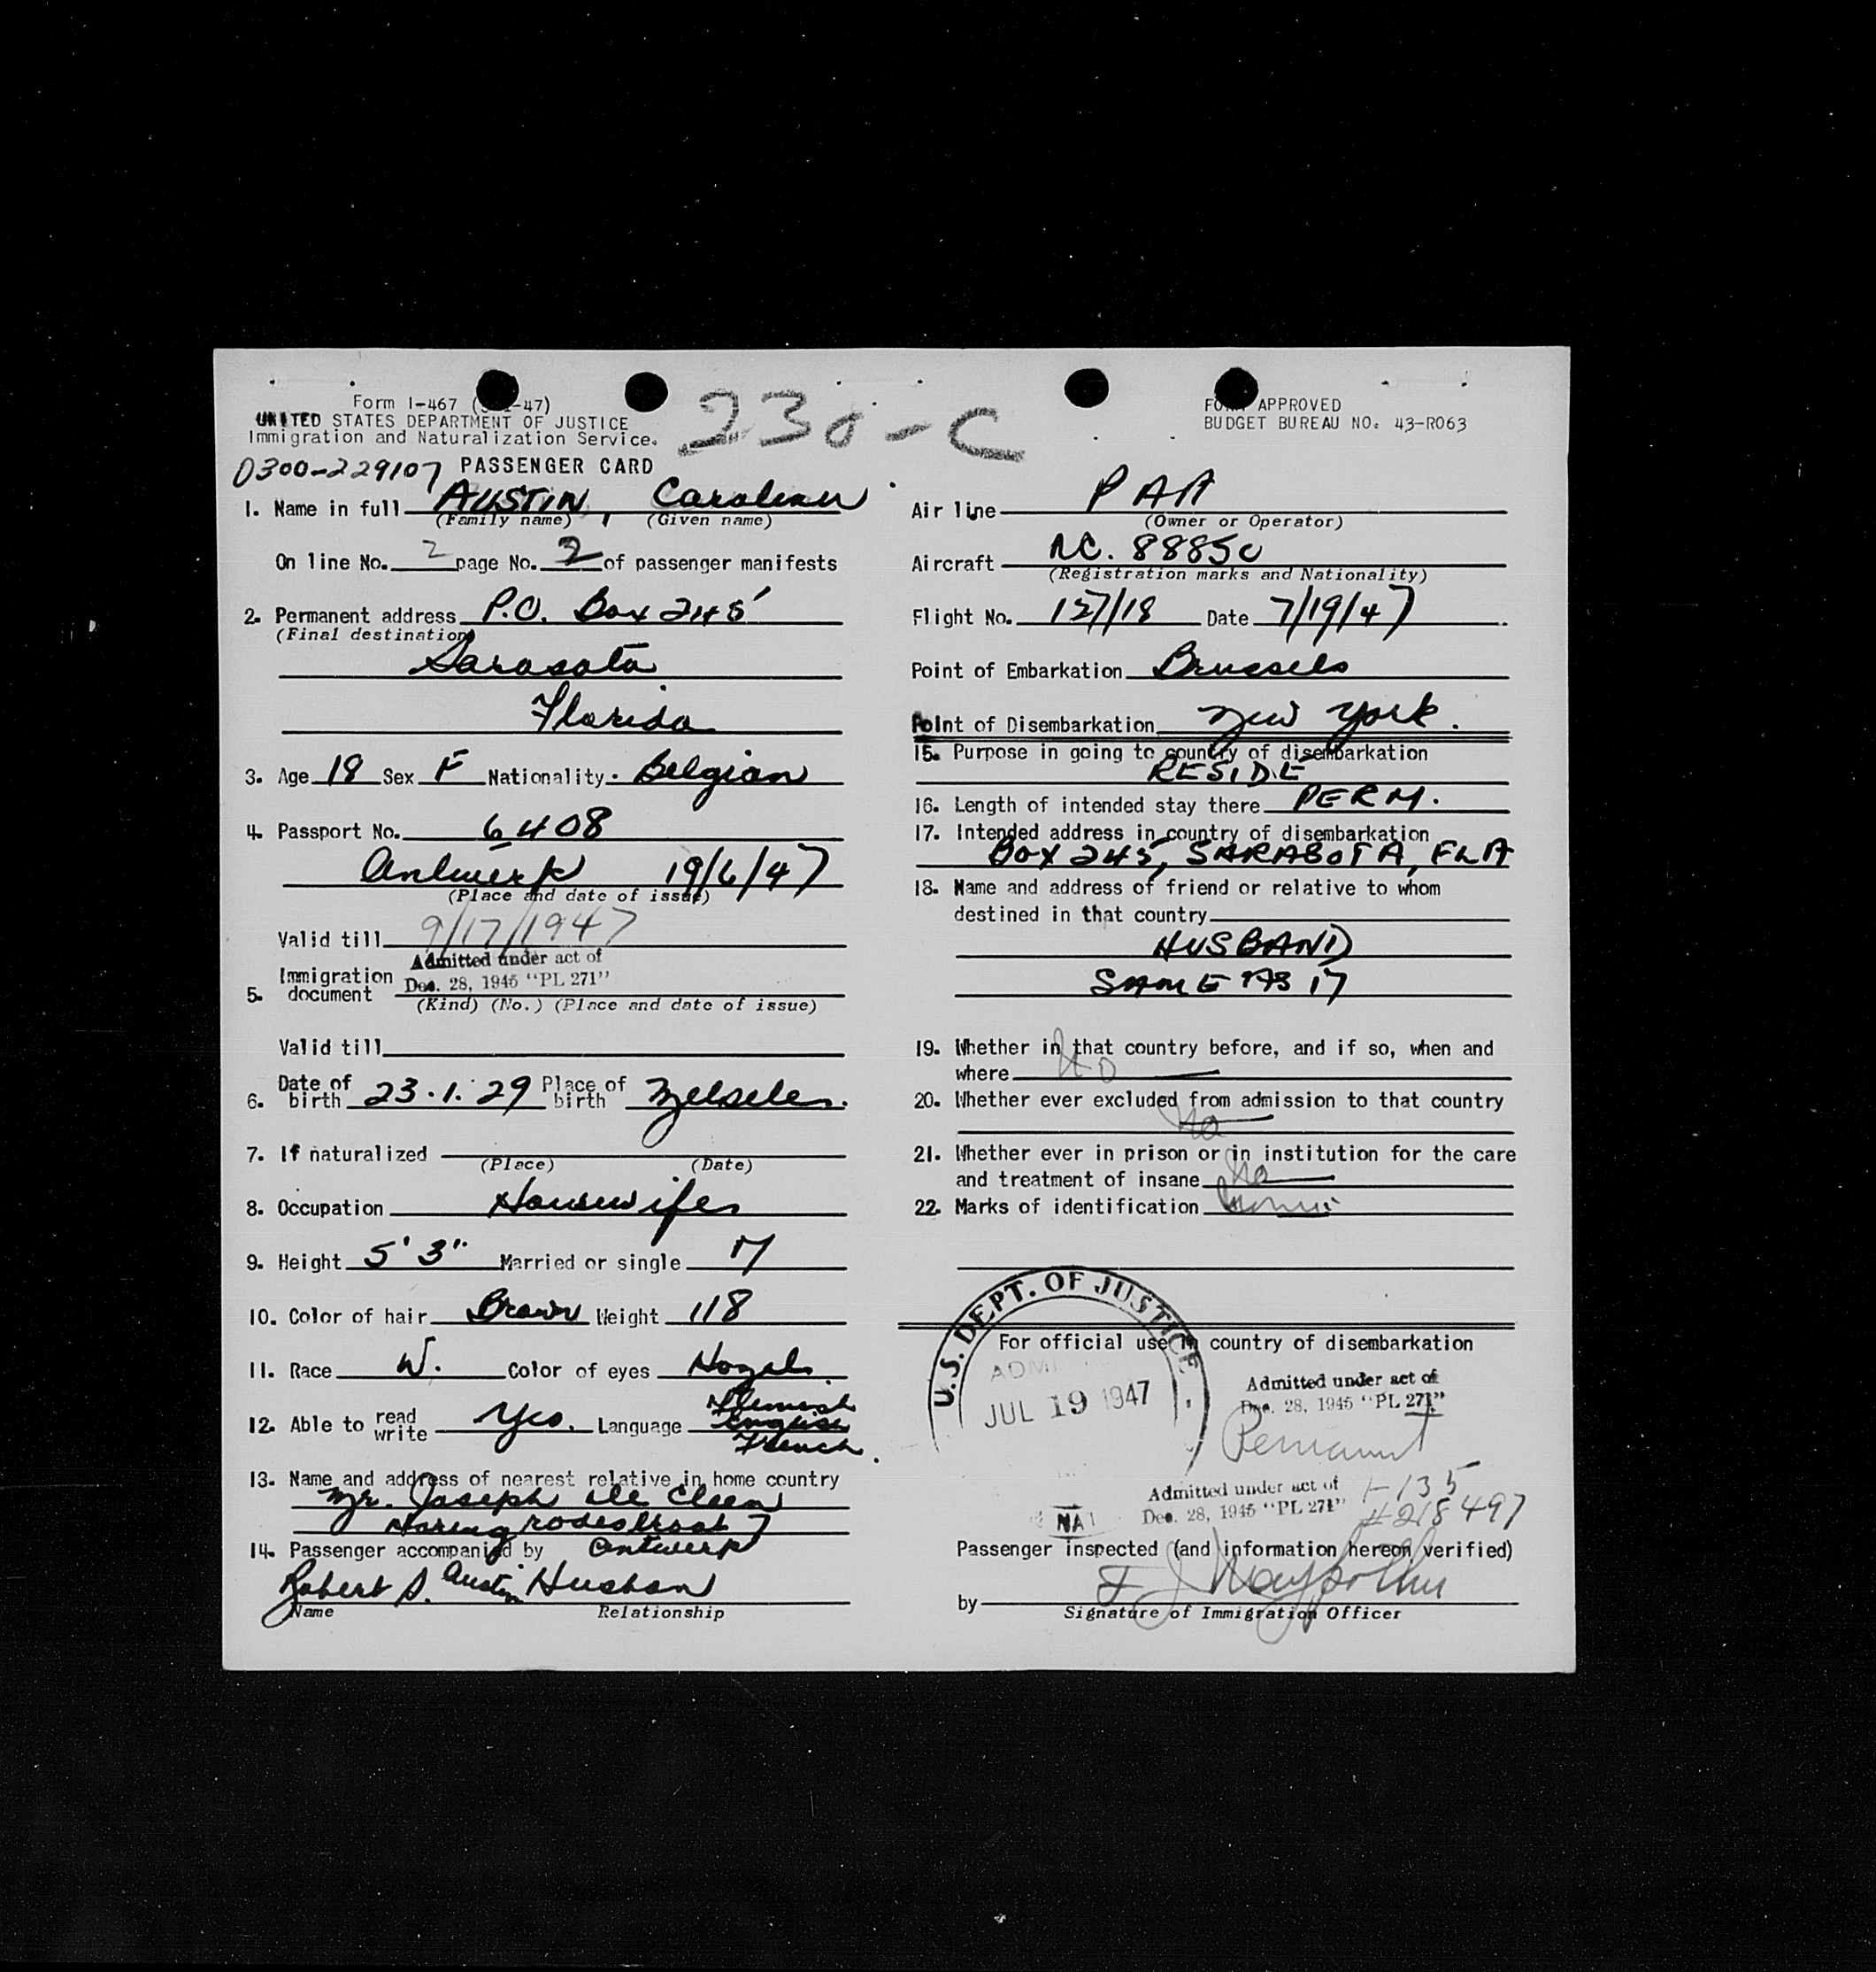 Form I-467 ( -47)
UNITED STATES DEPARTMENT OF JUSTICE
Immigration and Naturalization Service.
230-C
FORM APPROVED
BUDGET BUREAU NO. 43-R063
0300-229107 PASSENGER CARD
1. Name in full AUSTIN, Caroline
(Family name) (Given name)
On line No. 2 page No. 2 of passenger manifests
2. Permanent address P.O. Box 245
(Final destination)
Sarasota
Florida
3. Age 18 Sex F Nationality. Belgian
4. Passport No. 6408
Antwerp 19/6/47
(Place and date of issue)
Valid till 9/17/1947
Admitted under act of
Dec. 28, 1945 "PL 271"
5. Immigration document
(Kind) (No.) (Place and date of issue)
Valid till
6. Date of birth 23.1.29 Place of birth Melsele.
7. If naturalized
(Place) (Date)
8. Occupation Housewife
9. Height 5' 3" Married or single M
10. Color of hair Brown Weight 118
11. Race W. Color of eyes Hazel.
12. Able to read write Yes. Language Flemish
English
French
13. Name and address of nearest relative in home country
Mr. Joseph De Cleen
7
14. Passenger accompanied by Antwerp
Robert S. Austin Husban
Name Relationship
Air line PAA
(Owner or Operator)
Aircraft NC. 88850
(Registration marks and Nationality)
Flight No. 157/18 Date 7/19/47
Point of Embarkation Brussels
Point of Disembarkation New York.
15. Purpose in going to country of disembarkation
RESIDE
16. Length of intended stay there PERM.
17. Intended address in country of disembarkation
BOX 245, SARASOTA, FLA
18. Name and address of friend or relative to whom
destined in that country
HUSBAND
SAME AS 17
19. Whether in that country before, and if so, when and
where No
20. Whether ever excluded from admission to that country
No
21. Whether ever in prison or in institution for the care
and treatment of insane No
22. Marks of identification none
U.S. DEPT. OF JUSTICE
For official use in country of disembarkation
JUL 19 1947
Admitted under act of
Dec. 28, 1945 "PL 271"
Permanent
Admitted under act of
Dec. 28, 1945 "PL 271"
1-135
#218497
NA
Passenger inspected (and information hereon verified)
by
Signature of Immigration Officer